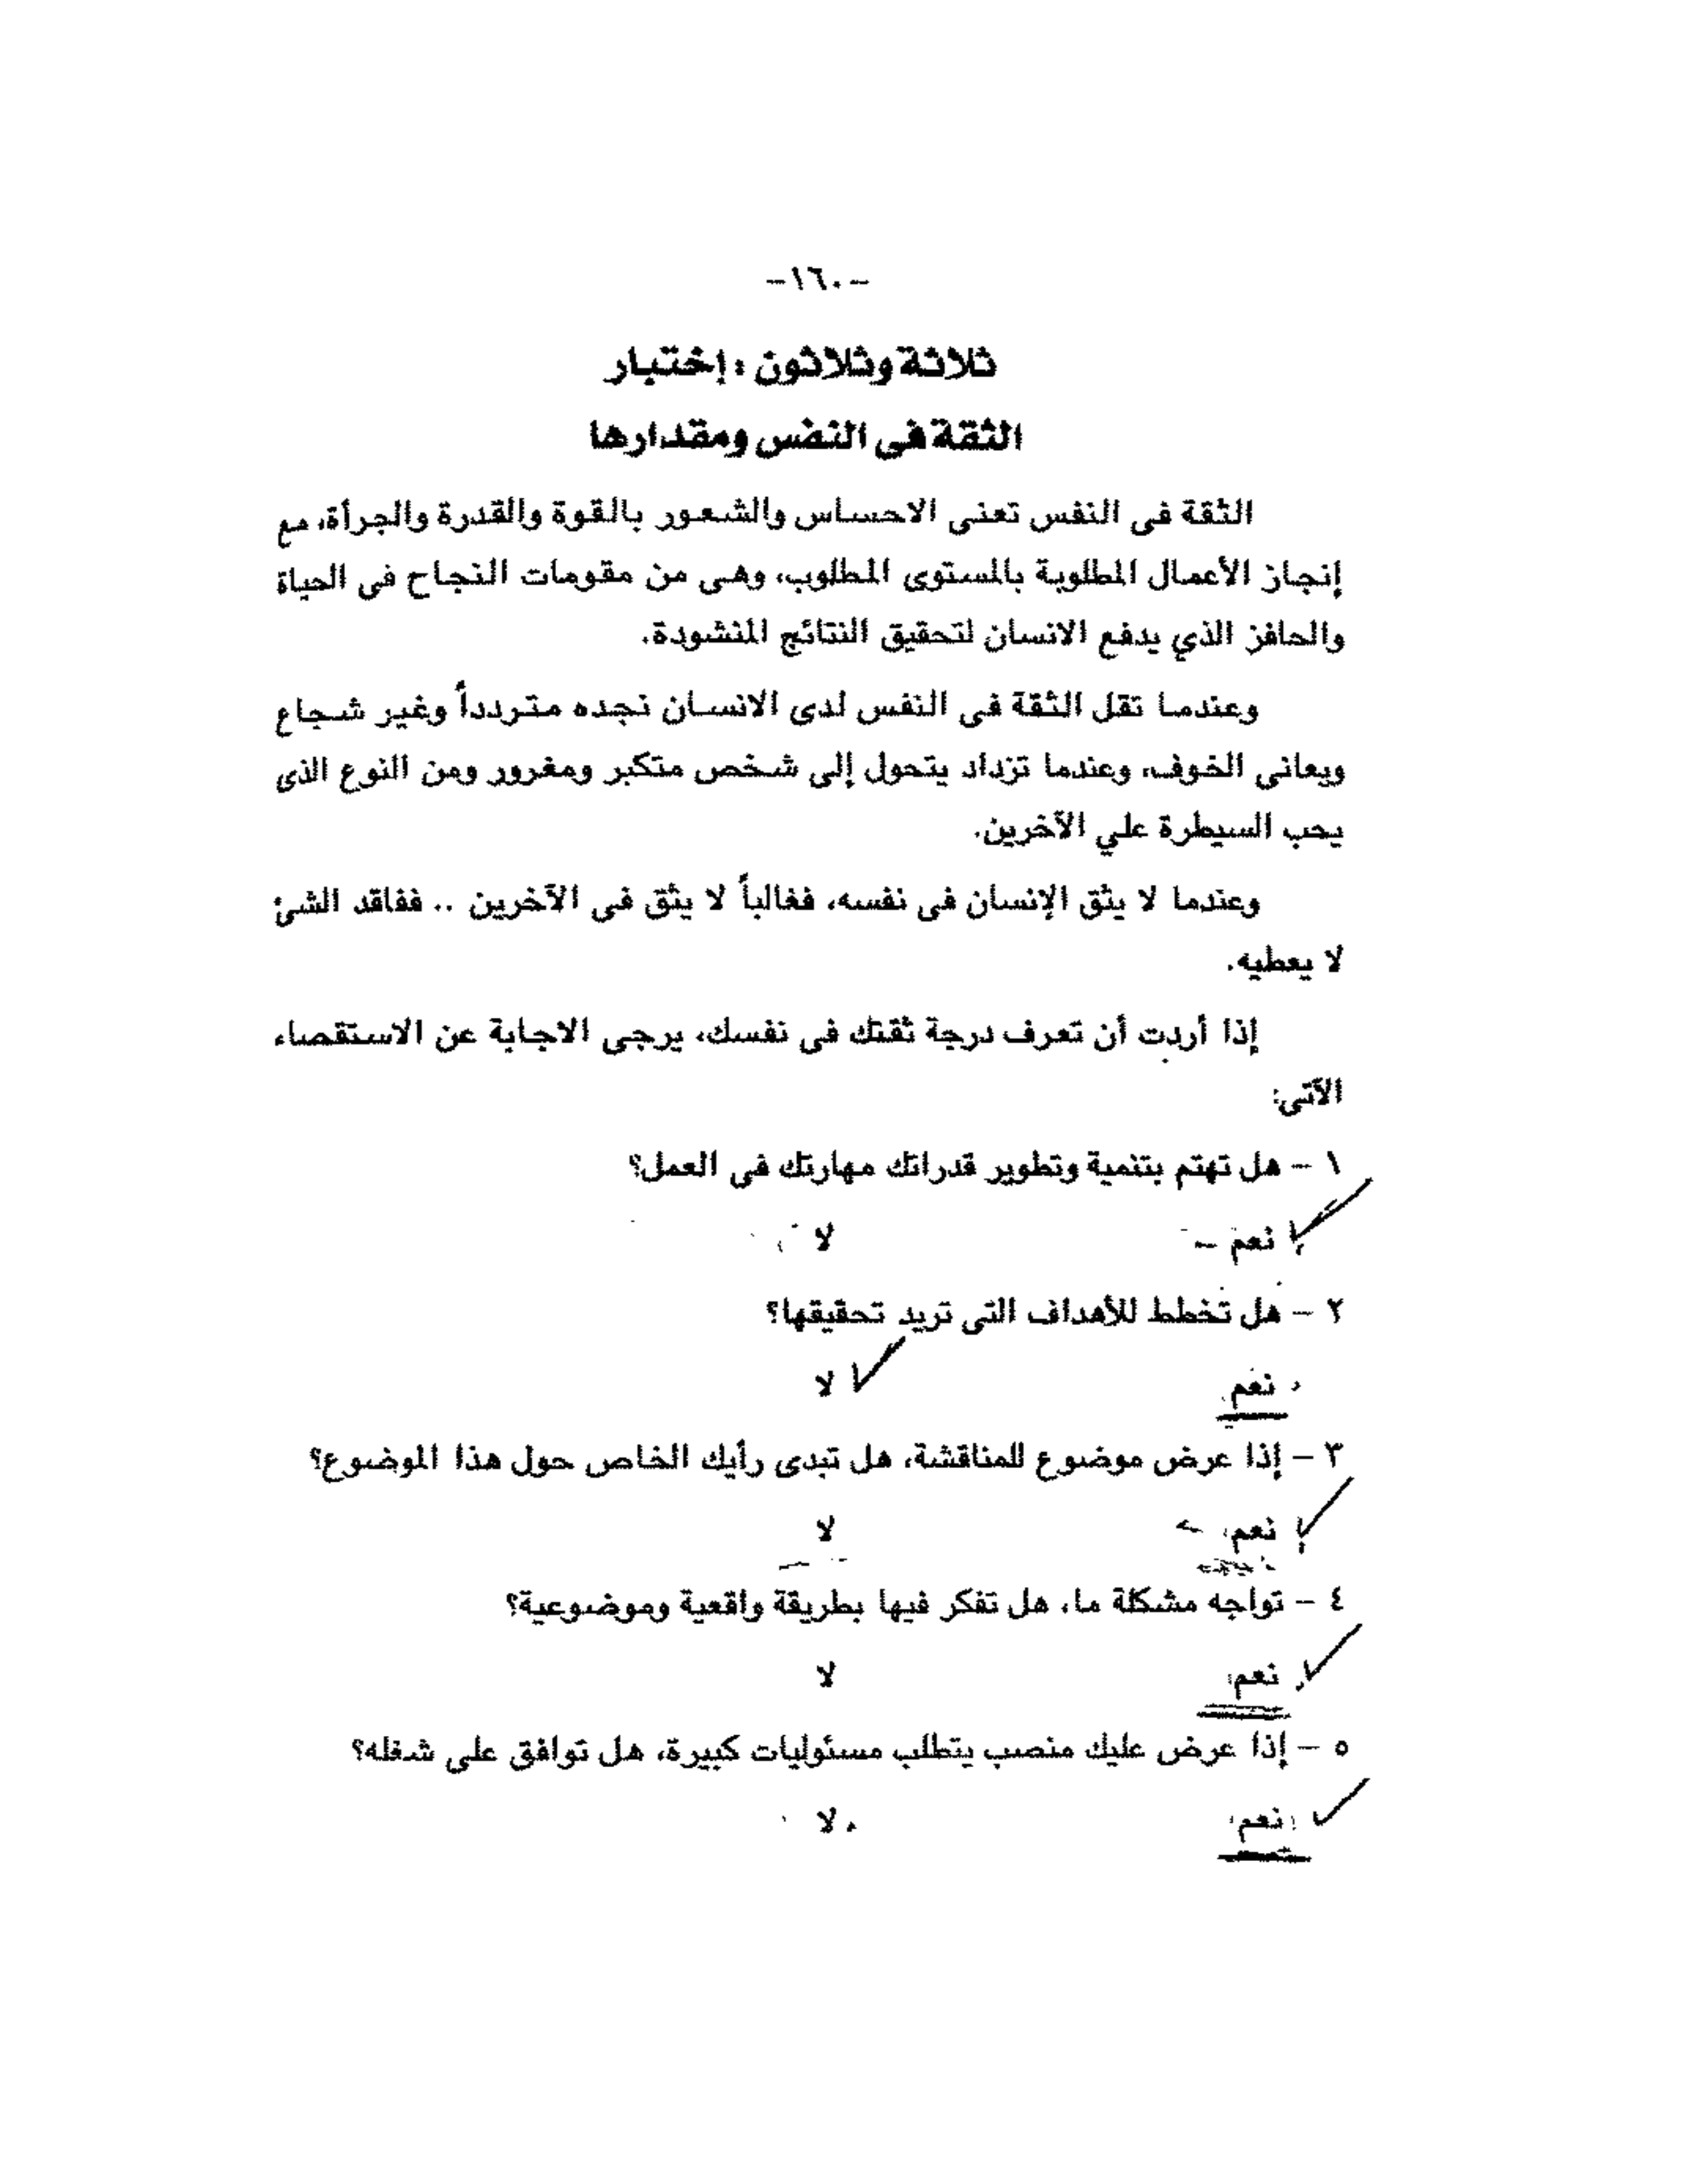 -١٦٠-
ثلاثة وثلاثون : إختبار
الثقة فى النفس ومقدارها
الثقة فى النفس تعنى الاحساس والشعور بالقوة والقدرة والجرأة، مع
إنجاز الأعمال المطلوبة بالمستوى المطلوب، وهى من مقومات النجاح فى الحياة
والحافز الذي يدفع الانسان لتحقيق النتائج المنشودة.
وعندما تقل الثقة فى النفس لدى الانسان نجده متردداً وغير شجاع
ويعانى الخوف، وعندما تزداد يتحول إلى شخص متكبر ومغرور ومن النوع الذى
يحب السيطرة علي الآخرين.
وعندما لا يثق الإنسان فى نفسه، فغالباً لا يثق فى الآخرين .. ففاقد الشئ
لا يعطيه.
إذا أردت أن تعرف درجة ثقتك فى نفسك، يرجى الاجابة عن الاستقصاء
الآتى:
١ - هل تهتم بتنمية وتطوير قدراتك مهارتك فى العمل؟
نعم لا
٢ - هل تخطط للأهداف التى تريد تحقيقها؟
نعم لا
٣ - إذا عرض موضوع للمناقشة، هل تبدى رأيك الخاص حول هذا الموضوع؟
نعم لا
٤ - تواجه مشكلة ما، هل تفكر فيها بطريقة واقعية وموضوعية؟
نعم لا
٥ - إذا عرض عليك منصب يتطلب مسئوليات كبيرة، هل توافق على شغله؟
نعم لا